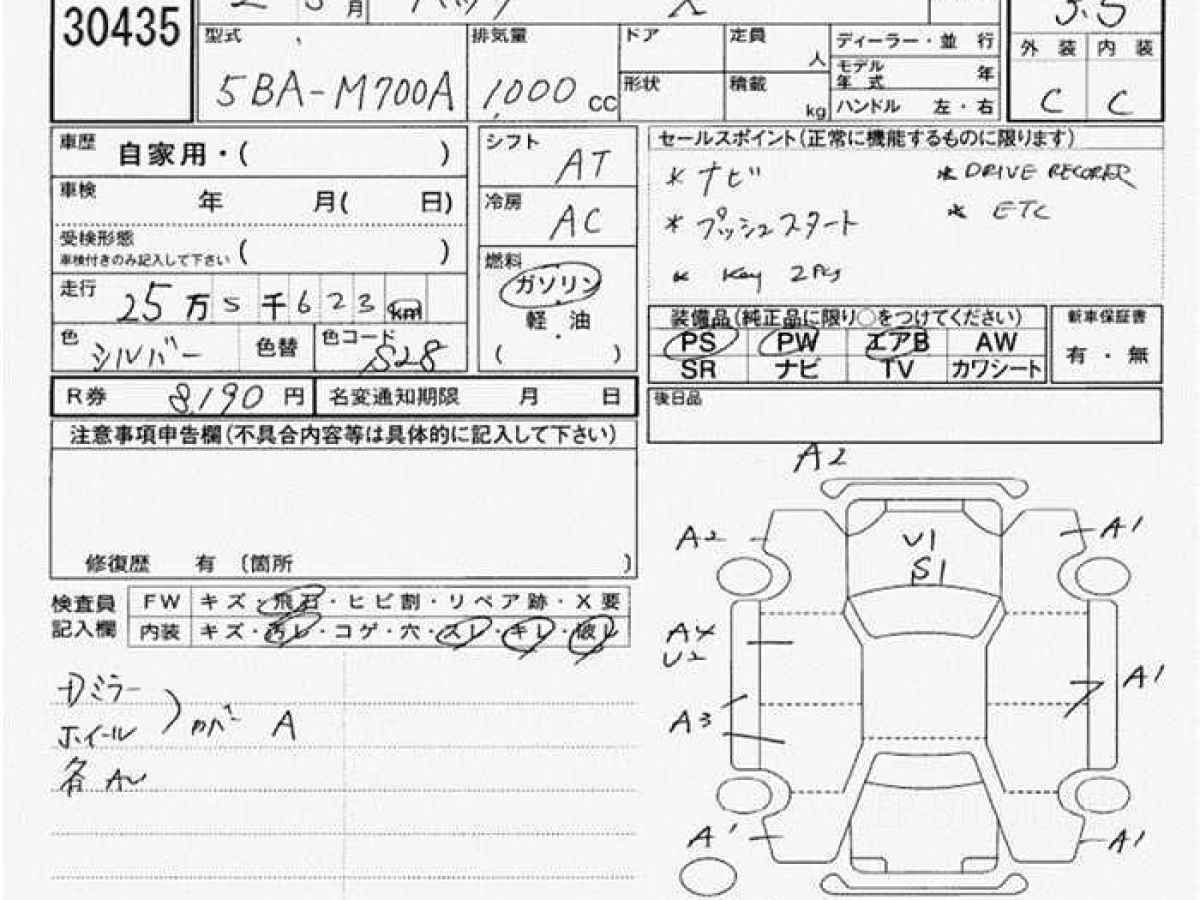 30435
2 5 月 パッソ X 3.5
型式 排気量 ドア 定員 人 ディーラー・並 行 外 装 内 装
5BA-M700A 1000 CC 形状 積載 kg モデル年式 年 C C
ハンドル 左・右
車歴 自家用・( )
シフト AT
セールスポイント(正常に機能するものに限ります)
* ナビ * DRIVE RECORER
* プッシュスタート * ETC
* Key 2Pcs
車検 年 月( 日)
冷房 AC
受検形態 ( )
車検付きのみ記入して下さい
燃料 ガソリン
軽・油
( )
走行 25 万 5 千 6 2 3 km
色 シルバー 色替 色コード S28
装備品(純正品に限り○をつけてください)
PS PW エアB AW
SR ナビ TV カワシート
新車保証書
有・無
R券 8,190 円 名変通知期限 月 日
後日品
注意事項申告欄(不具合内容等は具体的に記入して下さい)
修復歴 有 〔箇所 〕
検査員 FW キズ・飛石・ヒビ割・リペア跡・X要
記入欄 内装 キズ・汚レ・コゲ・穴・スレ・キレ・破レ
ミラー
ホイール ) カバー A
各 A
A2
A2 A1
U1
S1
A4
U2
A1
A3
A1 A1